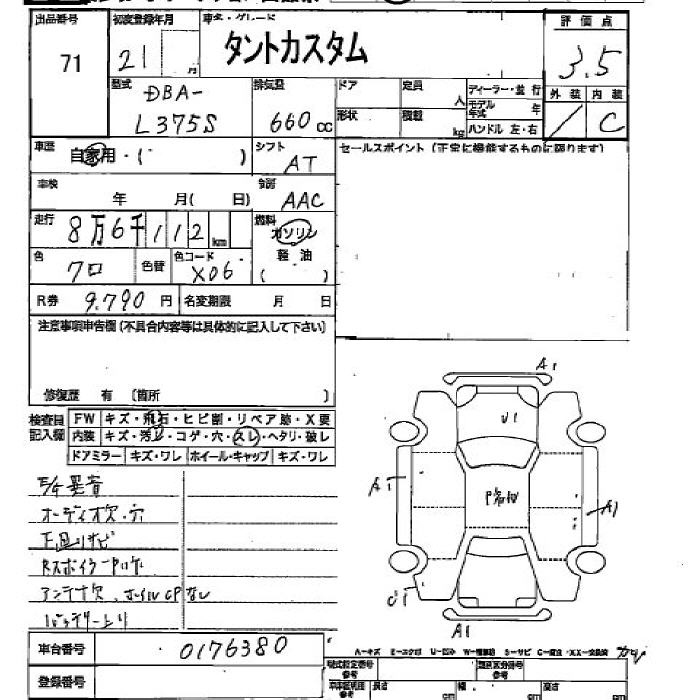 出品番号 初度登録年月 車名・グレード 評価点
71 21 月 タントカスタム 3.5
型式 排気量 ドア 定員 人 ディーラー・並行 外装 内装
DBA- モデル年式 年 / C
L375S 660cc 形状 積載 kg ハンドル 左・右
車歴 自家用・( ) シフト AT セールスポイント(正常に機能するものに限ります)
車検 年 月( 日) 冷房 AAC
走行 8万6千112km 燃料 ガソリン
色 クロ 色替 色コード X06 軽油 ( )
R券 9.790円 名変期限 月 日
注意事項申告欄(不具合内容等は具体的に記入して下さい)
修復歴 有 〔箇所 〕
検査員記入欄 FW キズ・飛石・ヒビ割・リペア跡・X要
内装 キズ・汚レ・コゲ・穴・スレ・ヘタリ・破レ
ドアミラー キズ・ワレ ホイール・キャップ キズ・ワレ
A1
U1
A1 A1
オーディオ欠・穴
下回リサビ
アンテナ欠
バッテリー上り
U1
A1
車台番号 0176380
A-キズ E-エクボ U-凹ミ W-補修跡 S-サビ C-腐食 XX-交換済
登録番号
型式指定番号 参考 類別区分番号 参考
長さ 幅 高さ